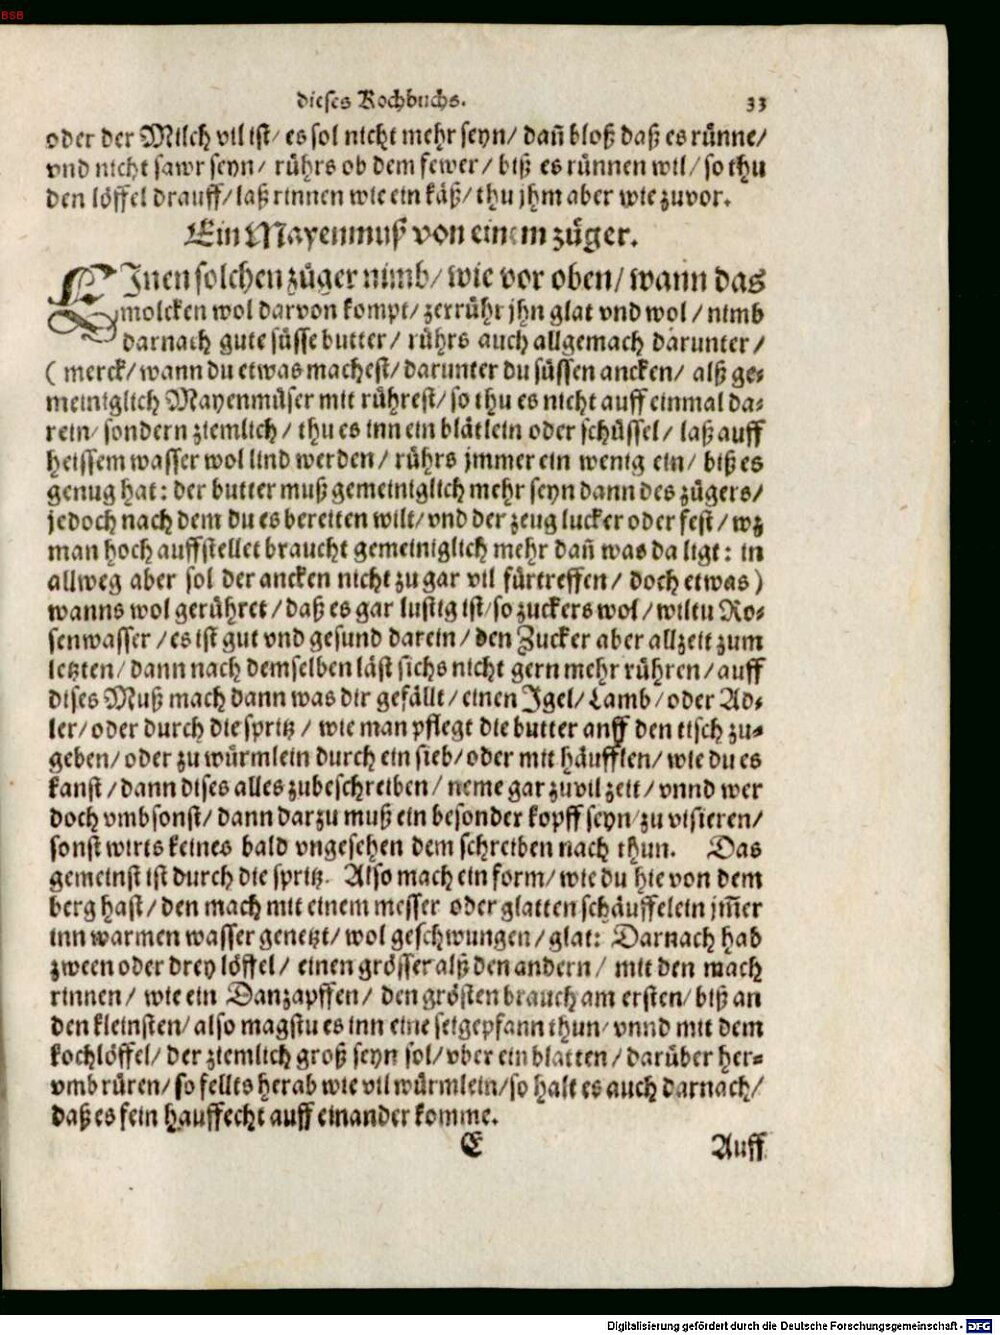 BSB
dieses Kochbuchs. 33
oder der Milch vil ist/ es sol nicht mehr seyn/ dañ bloß daß es rünne/
vnd nicht sawr seyn/ rührs ob dem fewer/ biß es rünnen wil/ so thu
den löffel drauff/ laß rinnen wie ein käß/ thu jhm aber wie zuvor.
Ein Mayenmuß von einem züger.
EInen solchen züger nimb/ wie vor oben/ wann das
molcken wol darvon kompt/ zerrühr jhn glat vnd wol/ nimb
darnach gute süsse butter/ rührs auch allgemach darunter/
( merck/ wann du etwas machest/ darunter du süssen ancken/ alß ge-
meiniglich Mayenmüser mit rührest/ so thu es nicht auff einmal da-
rein/ sondern ziemlich/ thu es inn ein blätlein oder schüssel/ laß auff
heissem wasser wol lind werden/ rührs jmmer ein wenig ein/ biß es
genug hat: der butter muß gemeiniglich mehr seyn dann des zügers/
jedoch nach dem du es bereiten wilt/ vnd der zeug lucker oder fest/ wz
man hoch auffstellet braucht gemeiniglich mehr dañ was da ligt: in
allweg aber sol der ancken nicht zu gar vil fürtreffen/ doch etwas )
wanns wol gerühret/ daß es gar lustig ist/ so zuckers wol/ wiltu Ro-
senwasser/ es ist gut vnd gesund darein/ den Zucker aber allzeit zum
letzten/ dann nach demselben läst sichs nicht gern mehr rühren/ auff
dises Muß mach dann was dir gefällt/ einen Igel/ Lamb/ oder Ad-
ler/ oder durch die spritz/ wie man pflegt die butter anff den tisch zu-
geben/ oder zu würmlein durch ein sieb/ oder mit häufflen/ wie du es
kanst/ dann dises alles zubeschreiben/ neme gar zuvil zeit/ vnnd wer
doch vmbsonst/ dann darzu muß ein besonder kopff seyn/ zu visieren/
sonst wirts keines bald vngesehen dem schreiben nach thun. Das
gemeinst ist durch die spritz. Also mach ein form/ wie du hie von dem
berg hast/ den mach mit einem messer oder glatten schäuffelein jm̃er
inn warmen wasser genetzt/ wol geschwungen/ glat: Darnach hab
zween oder drey löffel/ einen grösser alß den andern/ mit den mach
rinnen/ wie ein Danzapffen/ den grösten brauch am ersten/ biß an
den kleinsten/ also magstu es inn eine seigepfann thun/ vnnd mit dem
kochlöffel/ der ziemlich groß seyn sol/ vber ein blatten/ darüber her-
vmb rüren/ so fellts herab wie vil würmlein/ so halt es auch darnach/
daß es fein hauffecht auff einander komme.
E Auff
Digitalisierung gefördert durch die Deutsche Forschungsgemeinschaft - DFG